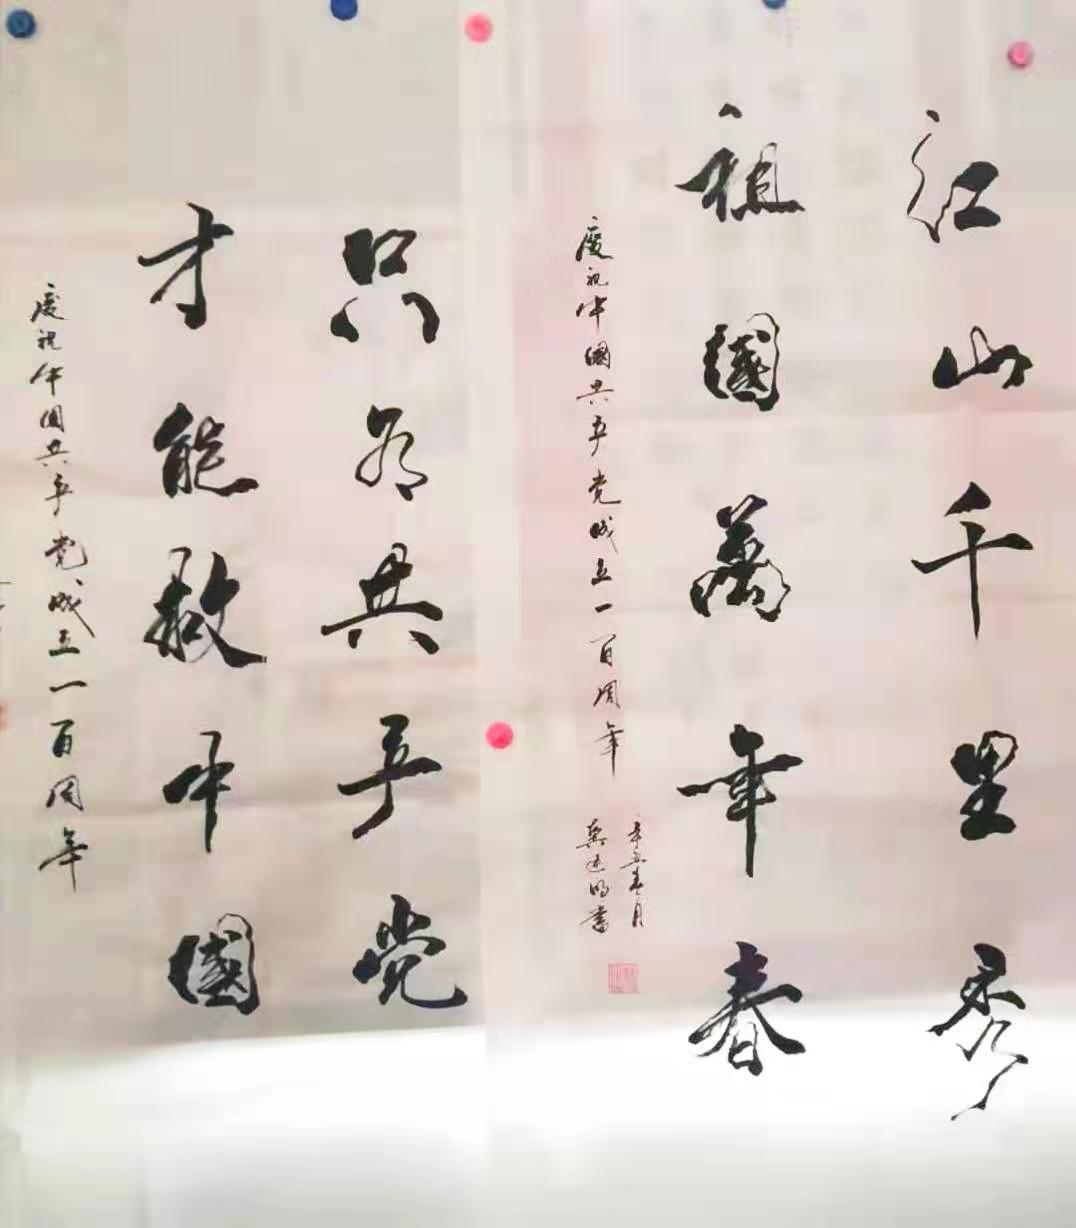 江山千里秀
祖國萬年春
慶祝中國共产党成立一百周年
辛丑春月
书
只有共产党
才能救中國
慶祝中国共产党成立一百周年